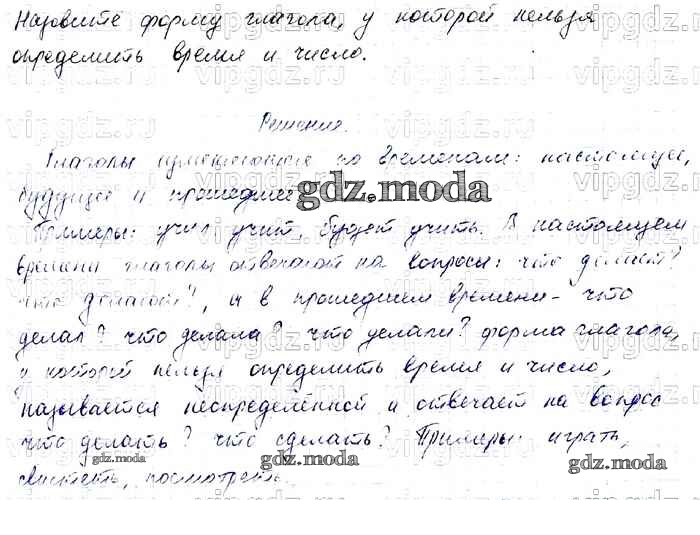 Назовите форму глагола, у которой нельзя
определить время и число.
Решение.
Глаголы изменяются по временам: настоящее,
будущее и прошедшее
gdz.moda
Примеры: учил учит, будет учить. В настоящем
времени глаголы отвечают на вопросы: что делает?
что делают?, а в прошедшем времени - что
делал? что делала? что делали? форма глагола,
у которой нельзя определить время и число,
называется неопределённой и отвечает на вопрос
что делать? что сделать? Примеры: играть,
gdz.moda gdz.moda gdz.moda
свистеть, посмотреть.